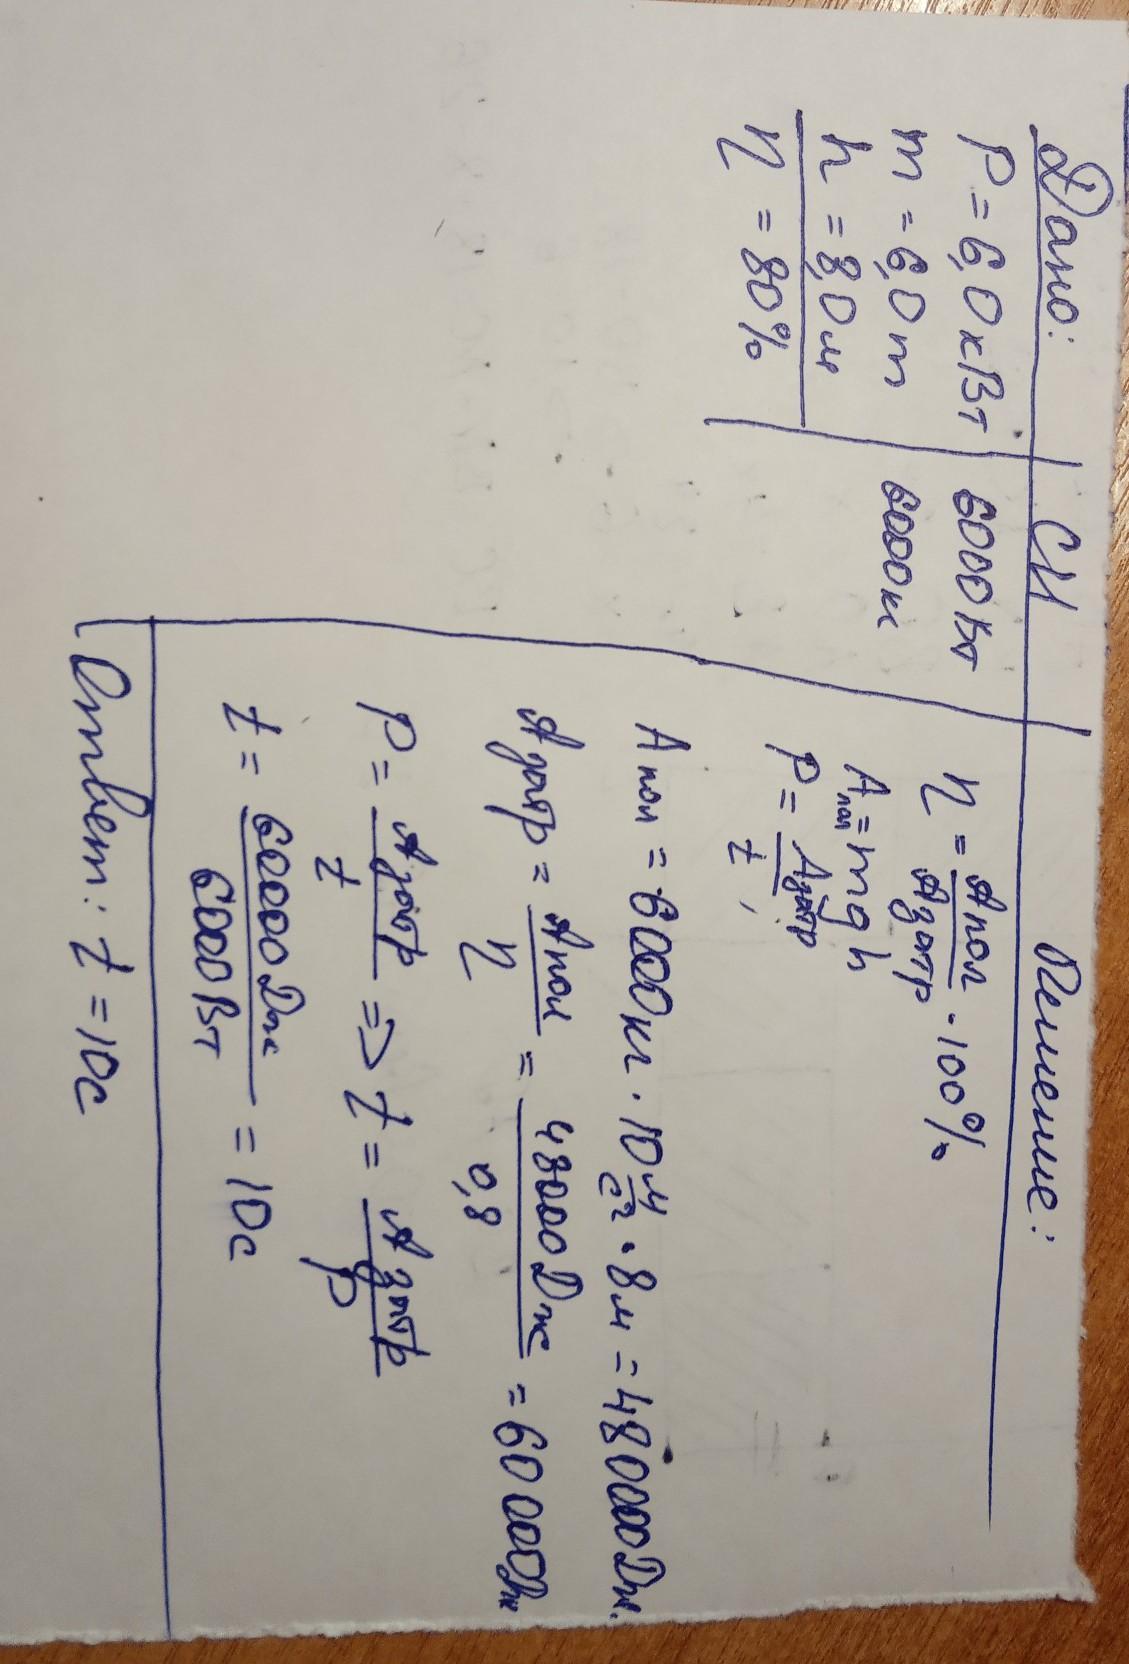 Дано:
P = 6,0 кВт
m = 6,0 т
h = 8,0 м
η = 80%
СИ
6000 Вт
6000 кг
Решение:
η = Aпол / Aзатр · 100%
Aпол = mgh
P = Aзатр / t ,
Aпол = 6000 кг · 10 м/с² · 8 м = 48 0000 Дж.
Aзатр = Aпол / η = 48000 Дж / 0,8 = 60 000 Дж
P = Aзатр / t => t = Aзатр / P
t = 60000 Дж / 6000 Вт = 10 с
Ответ: t = 10 с